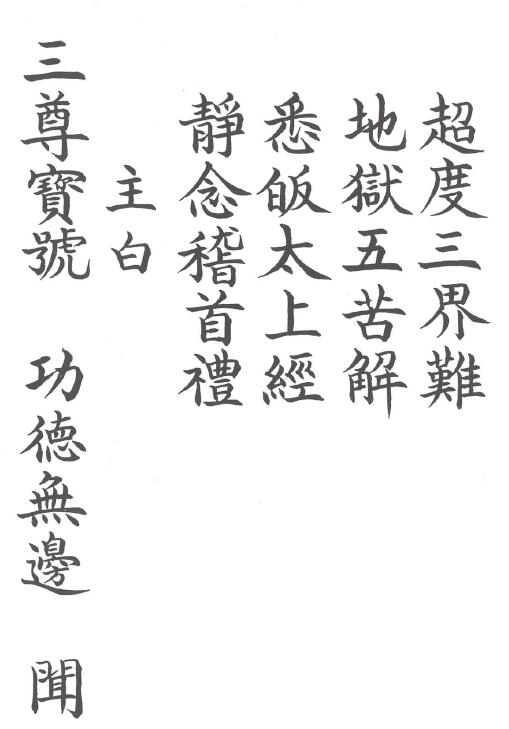 超度三界難
地獄五苦解
悉皈太上經
靜念稽首禮
主白
三尊寶號 功德無邊 聞